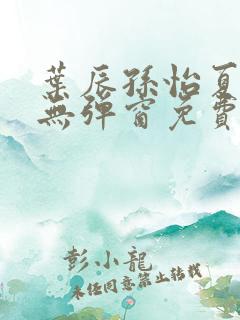 葉辰孫怡夏
無彈窗免費
彭小龍
未经同意禁止转载